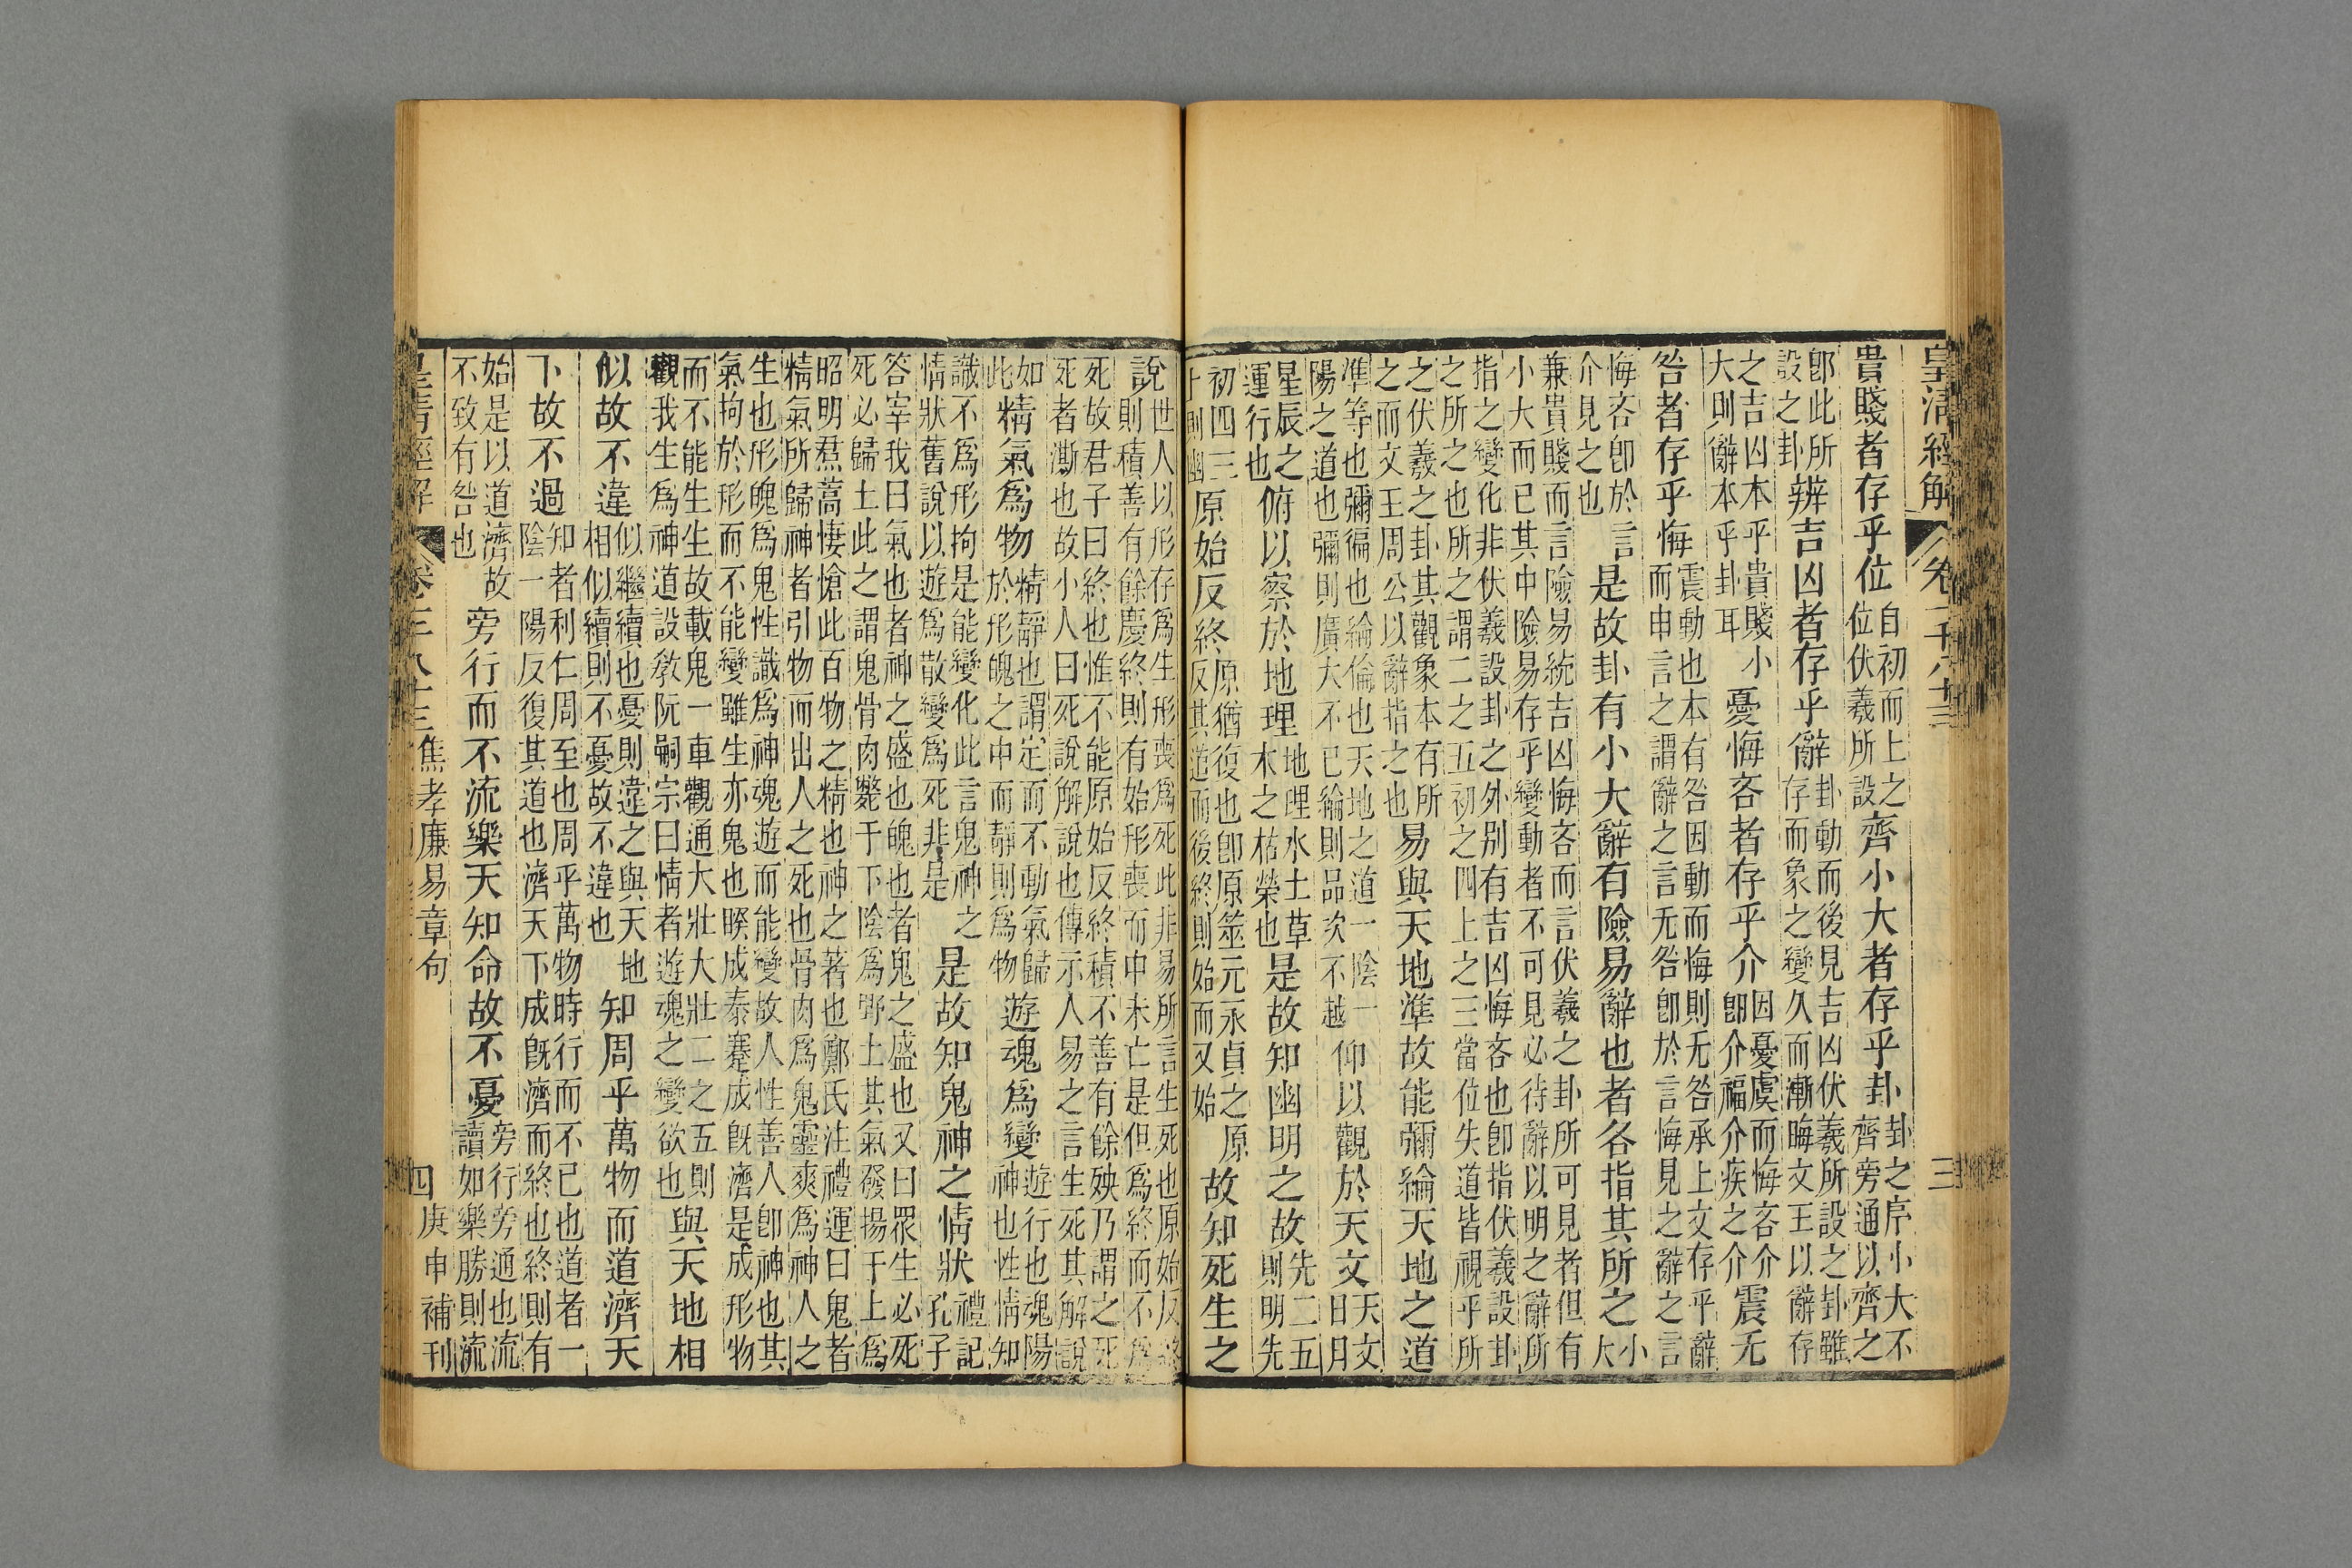 皇清經解 卷一千八十三 三
貴賤者存乎位
自初而上之
位伏羲所設
齊小大者存乎卦
卦之序小大不
齊旁通以齊之
卽此所
設之卦
辨吉凶者存乎辭
卦動而後見吉凶伏羲所設之卦雖
存而象之變久而漸晦文王以辭存
之吉凶本乎貴賤小
大則辭本乎卦耳
憂悔吝者存乎介
因憂虞而悔吝介
卽介福介疾之介
震无
咎者存乎悔
震動也本有咎因動而悔則无咎承上文存乎辭
而申言之謂辭之言无咎卽於言悔見之辭之言
悔吝卽於言
介見之也
是故卦有小大辭有險易辭也者各指其所之
小
大
兼貴賤而言險易統吉凶悔吝而言伏羲之卦所可見者但有
小大而已其中險易存乎變動者不可見必待辭以明之辭所
指之變化非伏羲設卦之外別有吉凶悔吝也卽指伏羲設卦
之所之也所之謂二之五初之四上之三當位失道皆視乎所
之伏羲之卦其觀象本有所
之而文王周公以辭指之也
易與天地準故能彌綸天地之道
準等也彌徧也綸倫也天地之道一陰一
陽之道也彌則廣大不已綸則品次不越
仰以觀於天文
天文
日月
星辰之
運行也
俯以察於地理
地理水土草
木之枯榮也
是故知幽明之故
先二五
則明先
初四三
上則幽
原始反終
原猶復也卽原筮元永貞之原
反其道而後終則始而又始
故知死生之
說
世人以形存爲生形喪爲死此非易所言生死也原始反終
則積善有餘慶終則有始形喪而中未亡是但爲終而不爲
死故君子曰終也惟不能原始反終積不善有餘殃乃謂之死
死者澌也故小人曰死說解說也傳示人易之言生死其解說
如
此
精氣爲物
精靜也謂定而不動氣歸
於形魄之中而靜則爲物
遊魂爲變
遊行也魂陽
神也性情知
識不爲形拘是能變化此言鬼神之
情狀舊說以遊爲散變爲死非是
是故知鬼神之情狀
禮記
孔子
答宰我曰氣也者神之盛也魄也者鬼之盛也又曰眾生必死
死必歸土此之謂鬼骨肉斃于下陰爲野土其氣發揚于上爲
昭明焄蒿悽愴此百物之精也神之著也鄭氏注禮運曰鬼者
精氣所歸神者引物而出人之死也骨肉爲鬼靈爽爲神人之
生也形魄爲鬼性識爲神魂遊而能變故人性善人卽神也其
氣拘於形而不能變雖生亦鬼也睽成泰蹇成旣濟是成形物
而不能生生故載鬼一車觀通大壯大壯二之五則
觀我生爲神道設敎阮嗣宗曰情者遊魂之變欲也
與天地相
似故不違
似繼續也憂則違之與天地
相似續則不憂故不違也
知周乎萬物而道濟天
下故不過
知者利仁周至也周乎萬物時行而不已也道者一
陰一陽反復其道也濟天下成旣濟而終也終則有
始是以道濟故
不致有咎也
旁行而不流樂天知命故不憂
旁行旁通也流
讀如樂勝則流
皇清經解
焦孝廉易章句
四
庚申補刊